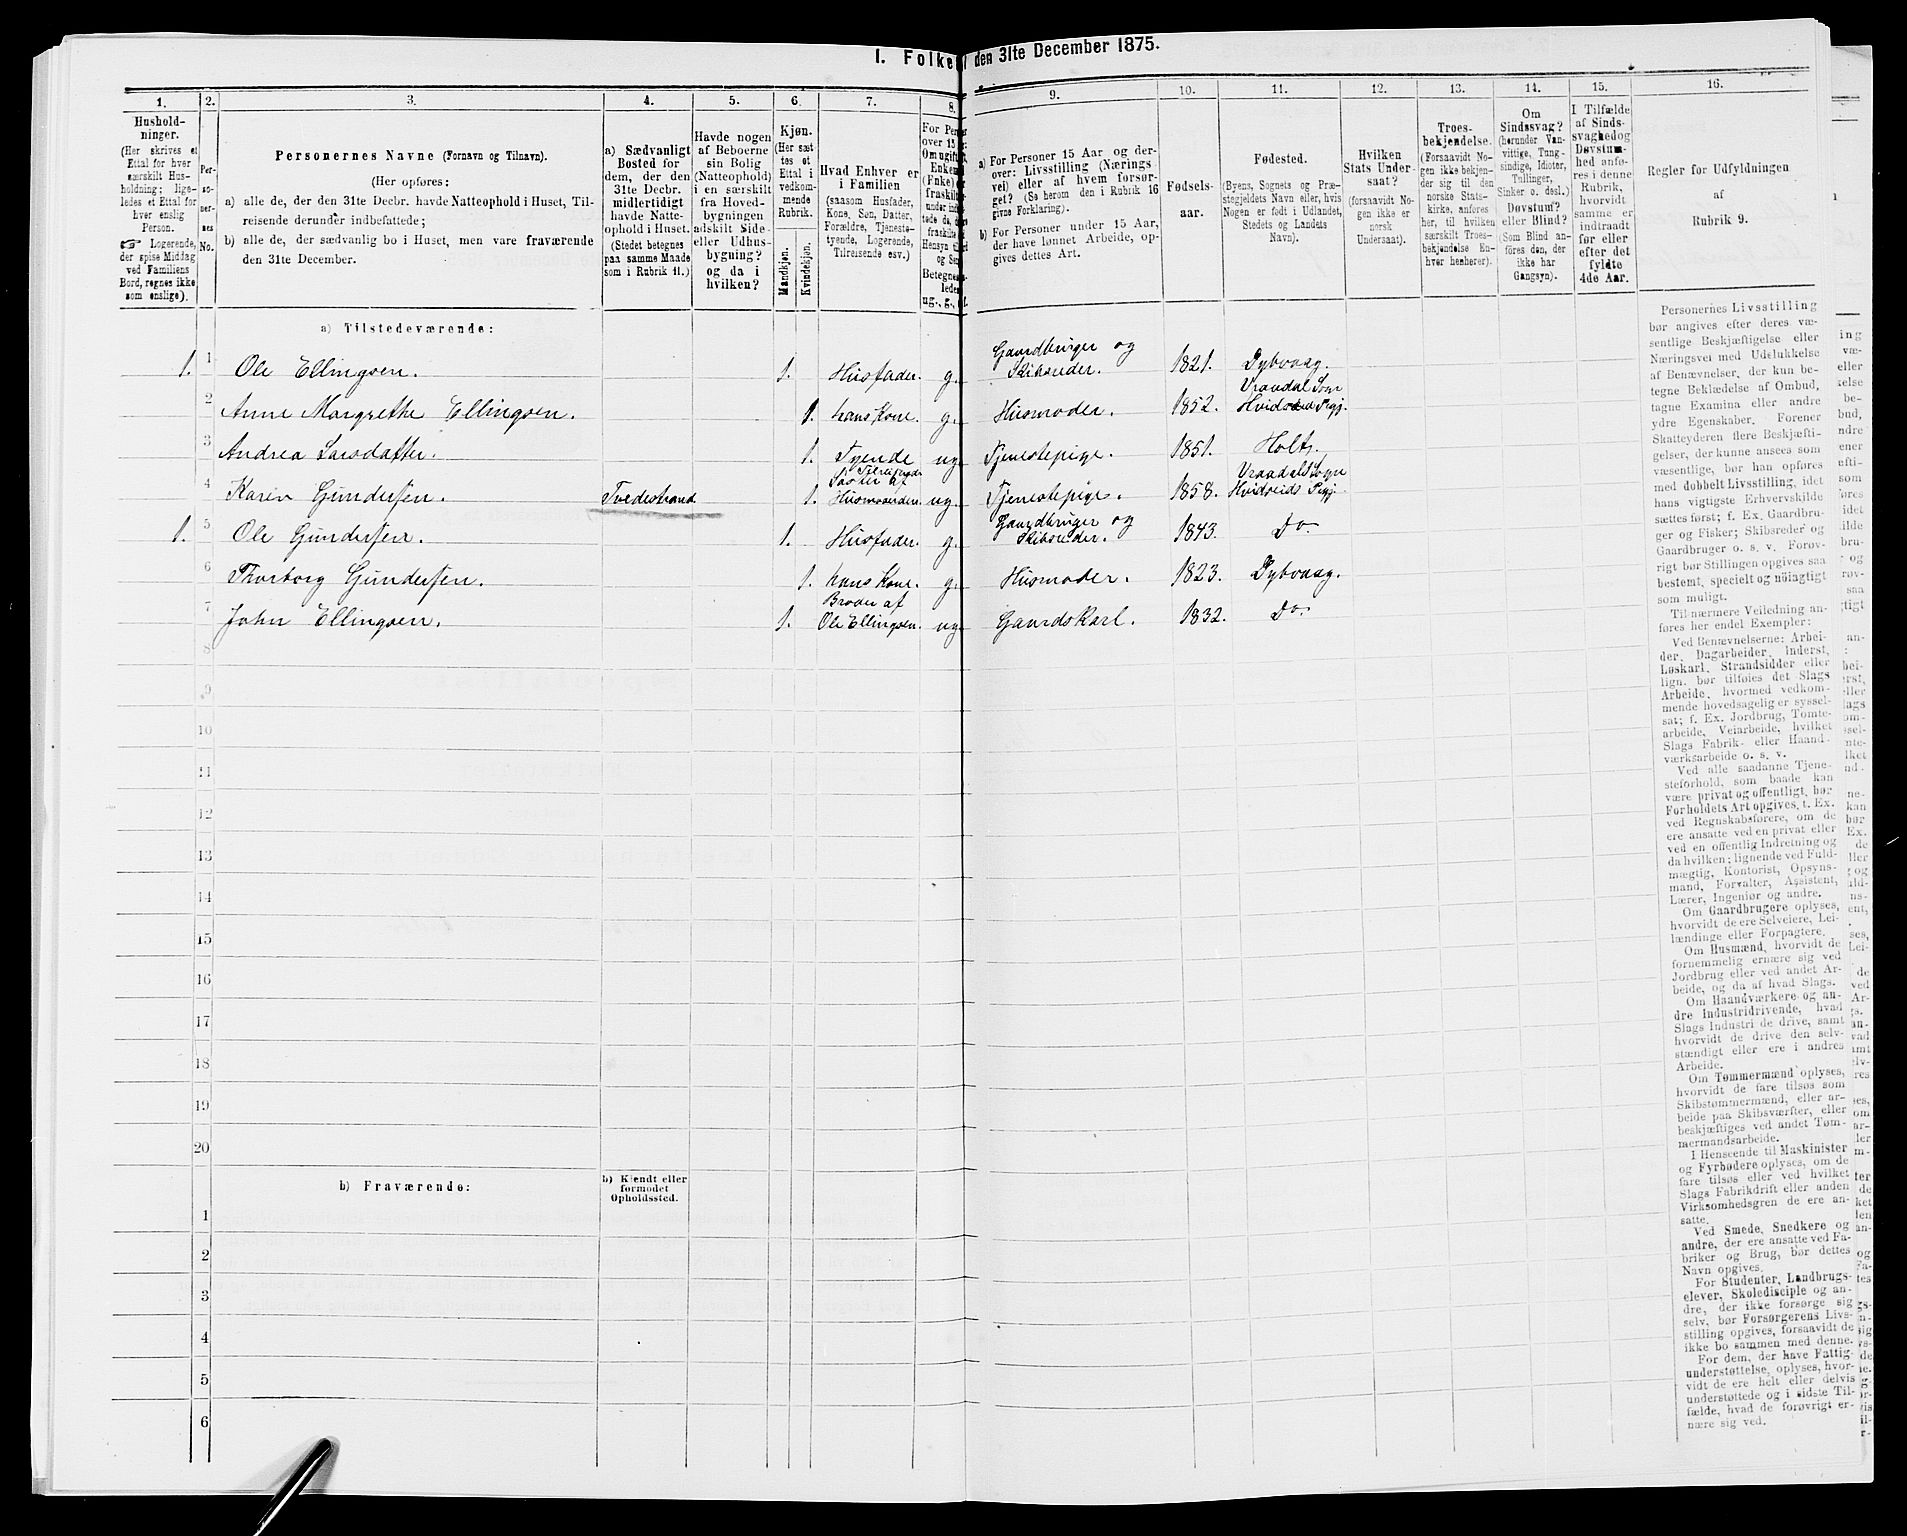 I. Folket
den 31te December 1875.
1.
2.
3.
4.
5.
6.
7.
8.
9.
10.
11.
12.
13.
14.
15.
16.
Hushold-
ninger.
(Her skrives et
Ettal for hver
særskilt Hus-
holdning; lige-
ledes et Ettal for
hver enslig
Person.
☞ Logerende,
der spise Middag
ved Familiens
Bord, regnes ikke
som enslige).
Per-
so-
ner-
nes
No.
Personernes Navne (Fornavn og Tilnavn).
(Her opføres:
a) alle de, der den 31te Decbr. havde Natteophold i Huset, Til-
reisende derunder indbefattede;
b) alle de, der sædvanlig bo i Huset, men vare fraværende
den 31te December.
a) Sædvanligt
Bosted for
dem, der den
31te Decbr.
midlertidigt
havde Natte-
ophold i Huset.
(Stedet betegnes
paa samme Maade
som i Rubrik 11.)
Havde nogen
af Beboerne
sin Bolig
(Natteophold)
i en særskilt
fra Hoved-
bygningen
adskilt Side-
eller Udhus-
bygning?
og da i
hvilken?
Kjøn.
(Her sæt-
tes et
Ettal i
vedkom-
mende
Rubrik.
Mandkjøn.
Kvindekjøn.
Hvad Enhver er
i Familien
(saasom Husfader,
Kone, Søn, Datter,
Forældre, Tjeneste-
tyende, Logerende,
Tilreisende osv.)
a) For Personer 15 Aar og der-
over: Livsstilling (Nærings-
vei) eller af hvem forsør-
get? (Se herom den i Rubrik 16
givne Forklaring).
b) For Personer under 15 Aar,
der have lønnet Arbeide, op-
gives dettes Art.
Fødsels-
aar.
Fødested.
(Byens, Sognets og Præ-
stegjeldets Navn eller, hvis
Nogen er født i Udlandet,
Stedets og Landets
Navn).
Hvilken
Stats Under-
saat?
(forsaavidt No-
gen ikke er
norsk
Undersaat).
Troes-
bekjendelse.
(Forsaavidt No-
gen ikke bekjen-
der sig til den
norske Stats-
kirke, anføres
her, til hvilken
særskilt Troes-
bekjendelse En-
hver henhører).
Om
Sindssvag?
(herunder Van-
vittige, Tung-
sindige, Idioter,
Tullinger,
Sinker o. desl.)
Døvstum?
eller Blind?
(Som Blind an-
føres den, der
ikke har
Gangsyn).
I Tilfælde
af Sinds-
svaghed og
Døvstum-
hed anfø-
res i denne
Rubrik,
hvorvidt
samme er
indtraadt
før eller
efter det
fyldte
4de Aar.
Regler for Udfyldningen
af
Rubrik 9.
a) Tilstedeværende:
1. 1 Ole Ellingsen. 1. Husfader. g. Gaardbruger og Skibsreder. 1821. Dybvaag.
2 Anne Margrethe Ellingsen. 1. hans Kone. g. Husmoder. 1852. Vraadal Sogn Hvidesed Pgj.
3 Andrea Larsdatter. 1. Tyende ug. Tjenestepige. 1851. Holt.
4 Karen Gundersen. Tvedestrand 1. Søster af Husmoderen. ug. Tjenestepige. 1858. Vraadals Sogn Hvideseids Pgj.
1. 5 Ole Gundersen. 1. Husfader. g. Gaardbruger og Skibsreder. 1843. Do
6 Thorborg Gundersen. 1. hans Kone. g. Husmoder. 1823. Dybvaag.
7 John Ellingsen. 1. Broder af Ole Ellingsen. ug. Gaardskarl. 1832. Do
8
9
10
11
12
13
14
15
16
17
18
19
20
b) Fraværende:
b) Kjendt eller
formodet
Opholdssted.
1
2
3
4
5
6
Personernes Livsstilling
bør angives efter deres væ-
sentlige Beskjæftigelse eller
Næringsvei med Udelukkelse
af Benævnelser, der kun be-
tegne Beklædelse af Ombud,
tagne Examina eller andre
ydre Egenskaber. Forener
Skatteyderen flere Beskjæfti-
gelser, der kunne ansees som
væsentlige, bør han opføres
med dobbelt Livsstilling, idet
hans vigtigste Erhvervskilde
sættes først; f. Ex. Gaardbru-
ger og Fisker; Skibsreder og
Gaardbruger o. s. v. Forøv-
rigt bør Stillingen opgives saa
bestemt, specielt og nøiagtigt
som muligt.
Til nærmere Veiledning an-
føres her endel Exempler:
Ved Benævnelserne: Arbei-
der, Dagarbeider, Inderst,
Løskarl, Strandsidder eller
lign. bør tilføies det Slags
Arbeide, hvormed vedkom-
mende hovedsagelig er syssel-
sat; f. Ex. Jordbrug, Tomte-
arbeide, Veiarbeide, hvilket
Slags Fabrik- eller Haand-
værksarbeide o. s. v.
Ved alle saadanne Tjene-
steforhold, som baade kan
være privat og offentligt, bør
Forholdets Art opgives, t. Ex.
ved Regnskabsførere, om de
ere ansatte ved en privat eller
ved en offentlig Indretning og
da hvilken; lignende ved Fuld-
mægtig, Kontorist, Opsyns-
mand, Forvalter, Assistent,
Lærer, Ingeniør og andre.
Om Gaardbrugere oplyses,
hvorvidt de ere Selveiere, Lei-
lændinge eller Forpagtere.
Om Husmænd, hvorvidt de
fornemmelig ernære sig ved
Jordbrug eller ved andet Ar-
beide, og da af hvad Slags.
Om Haandværkere og an-
dre Industridrivende, hvad
Slags Industri de drive, samt
hvorvidt de drive den selv-
stændigt eller ere i andres
Arbeide.
Om Tømmermænd oplyses,
hvorvidt de fare tilsøs som
Skibstømmermænd, eller ar-
beide paa Skibsværfter, eller
beskjæftiges ved andet Tøm-
mermandsarbeide.
I Henseende til Maskinister
og Fyrbødere oplyses, om de
fare tilsøs eller ved hvilket
Slags Fabrikdrift eller anden
Virksomhedsgren de ere an-
satte.
Ved Smede, Snedkere og
andre, der ere ansatte ved Fa-
briker og Brug, bør dettes
Navn opgives.
For Studenter, Landbrugs-
elever, Skoledisciple og an-
dre, der ikke forsørge sig
selv, bør Forsørgerens Livs-
stilling opgives, forsaavidt de
ikke bo sammen med denne.
For dem, der have Fattig-
understøttelse, oplyses, hvor-
vidt de ere helt eller delvis
understøttede og i sidste Til-
fælde, hvad de forøvrigt er-
nære sig ved.